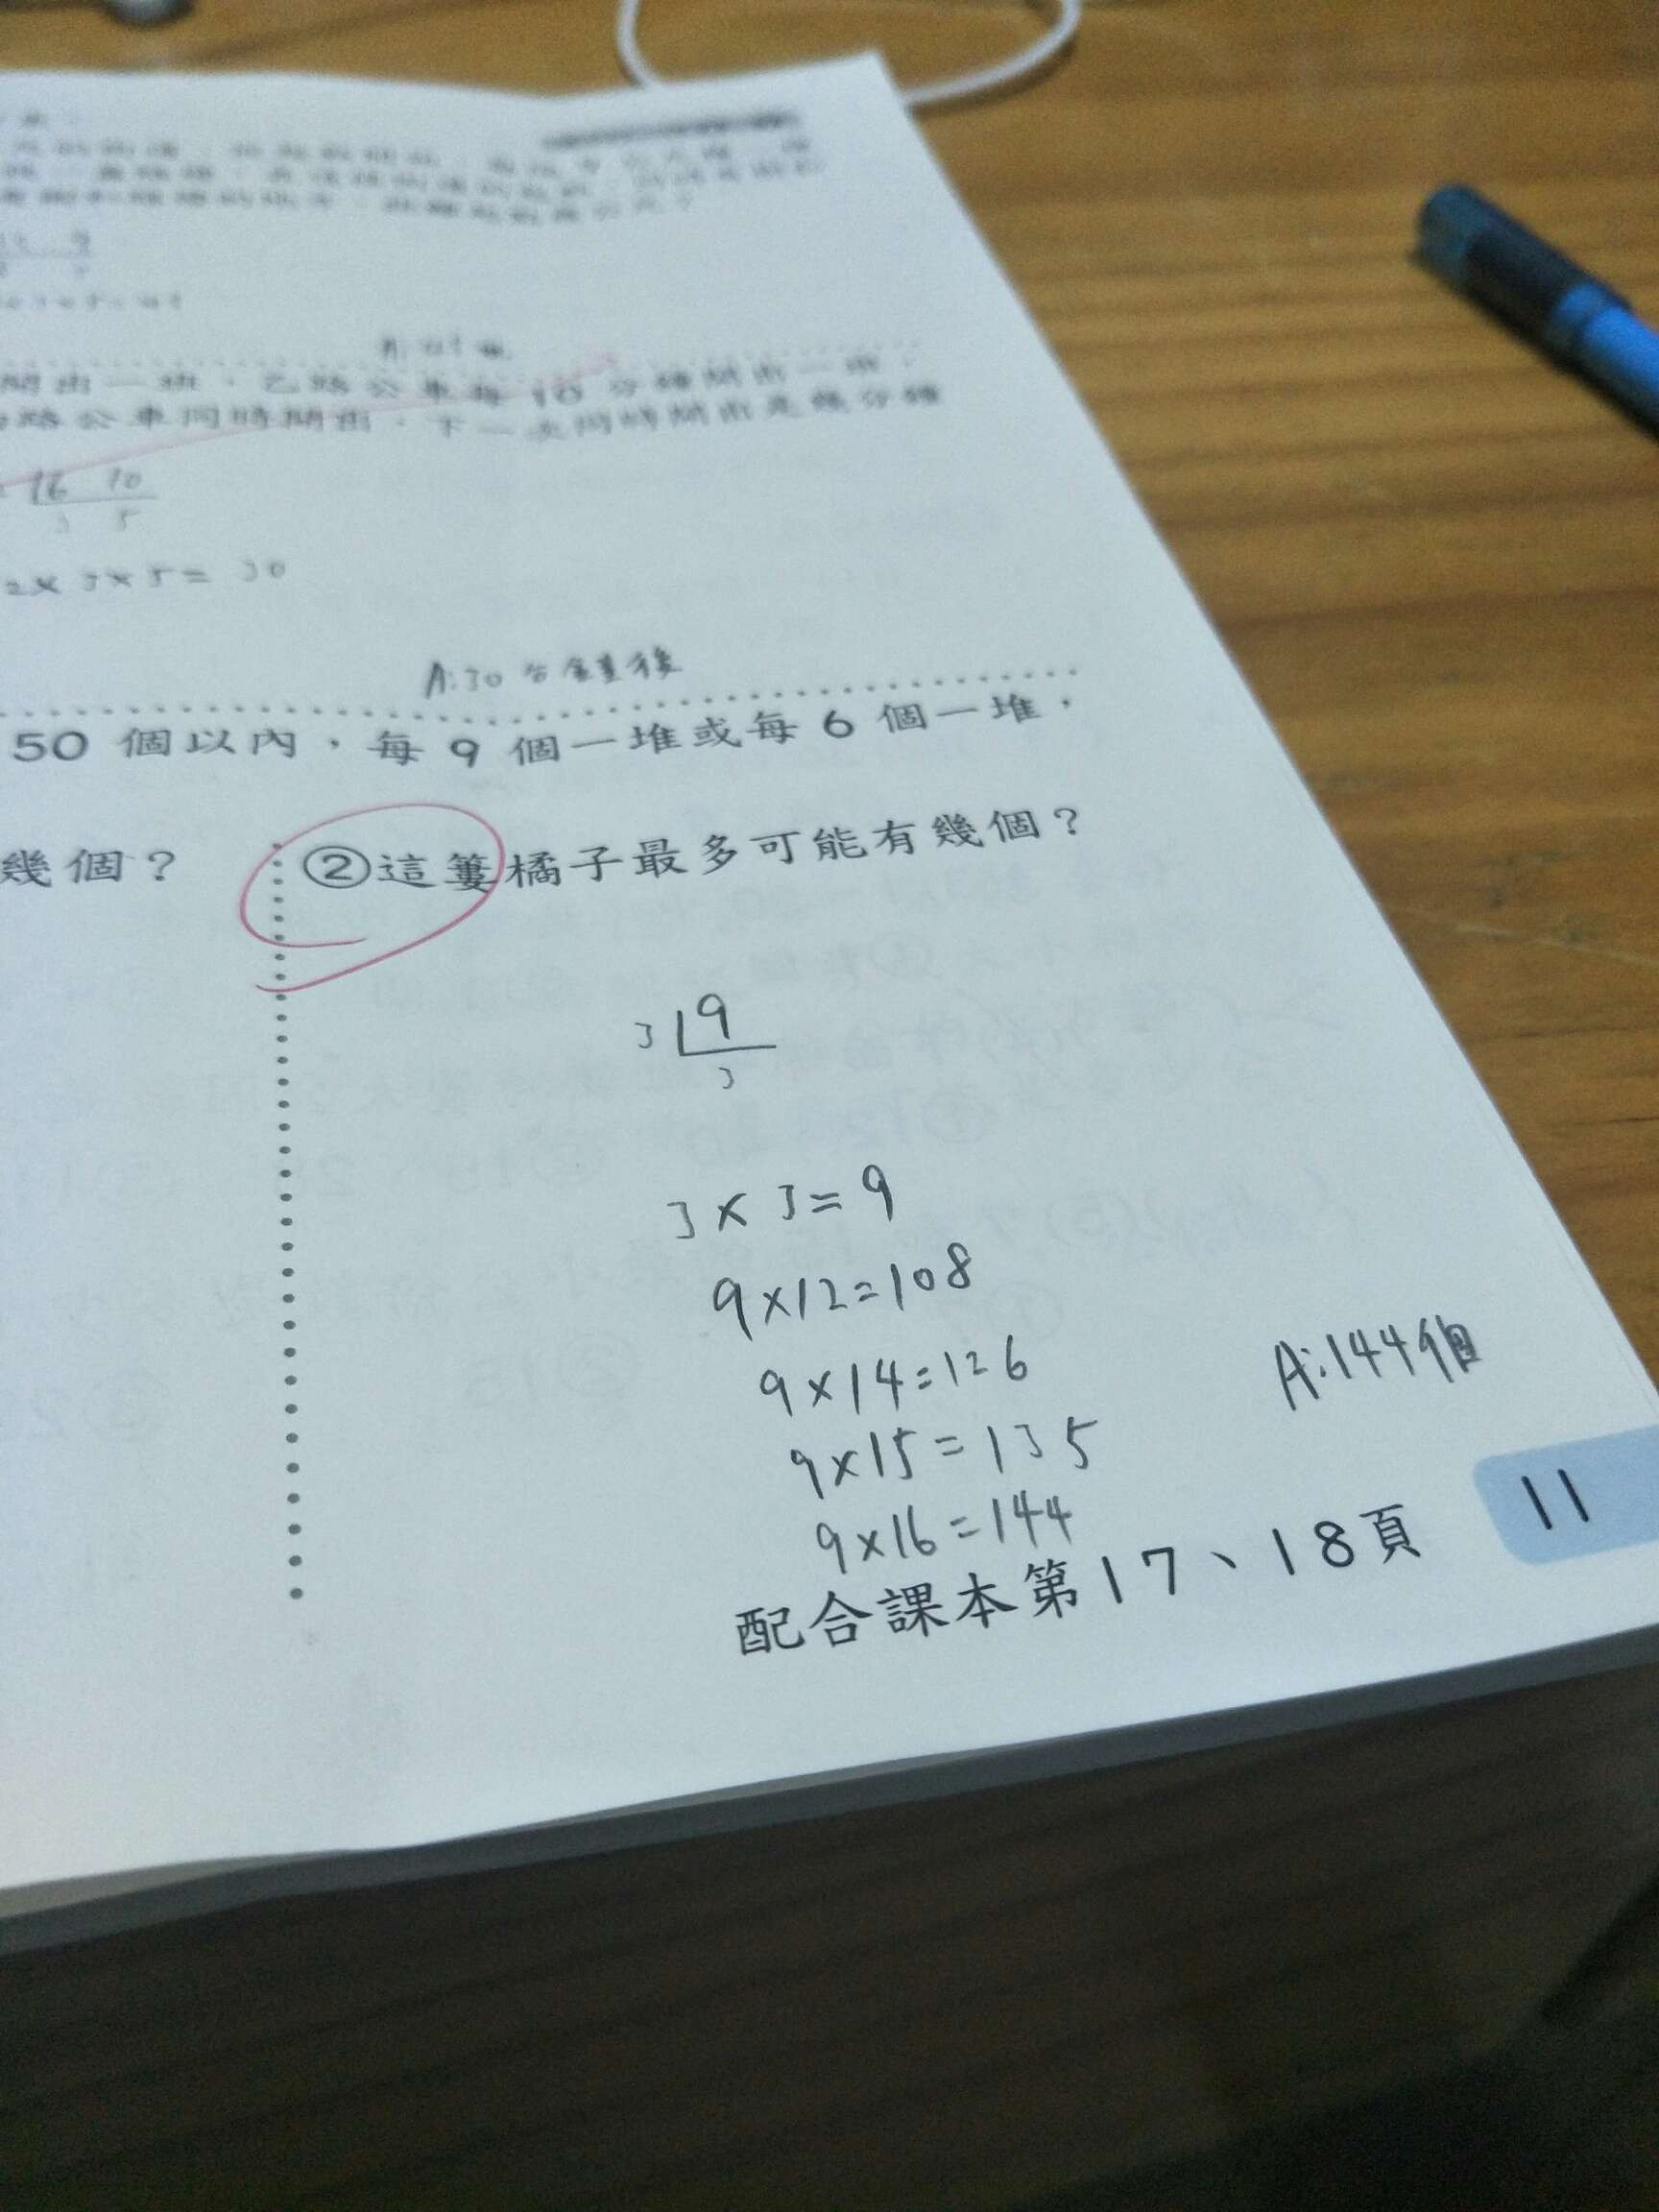 開出一班，乙路公車每10分鐘開出一班，
路公車同時開出，下一次同時開出是幾分鐘
16 10
3 5
2×3×5=30
A:30分鐘後
50個以內，每9個一堆或每6個一堆，
幾個？
②這簍橘子最多可能有幾個？
3 9
3
3×3=9
9×12=108
9×14=126
9×15=135
9×16=144
A:144個
配合課本第17、18頁
11